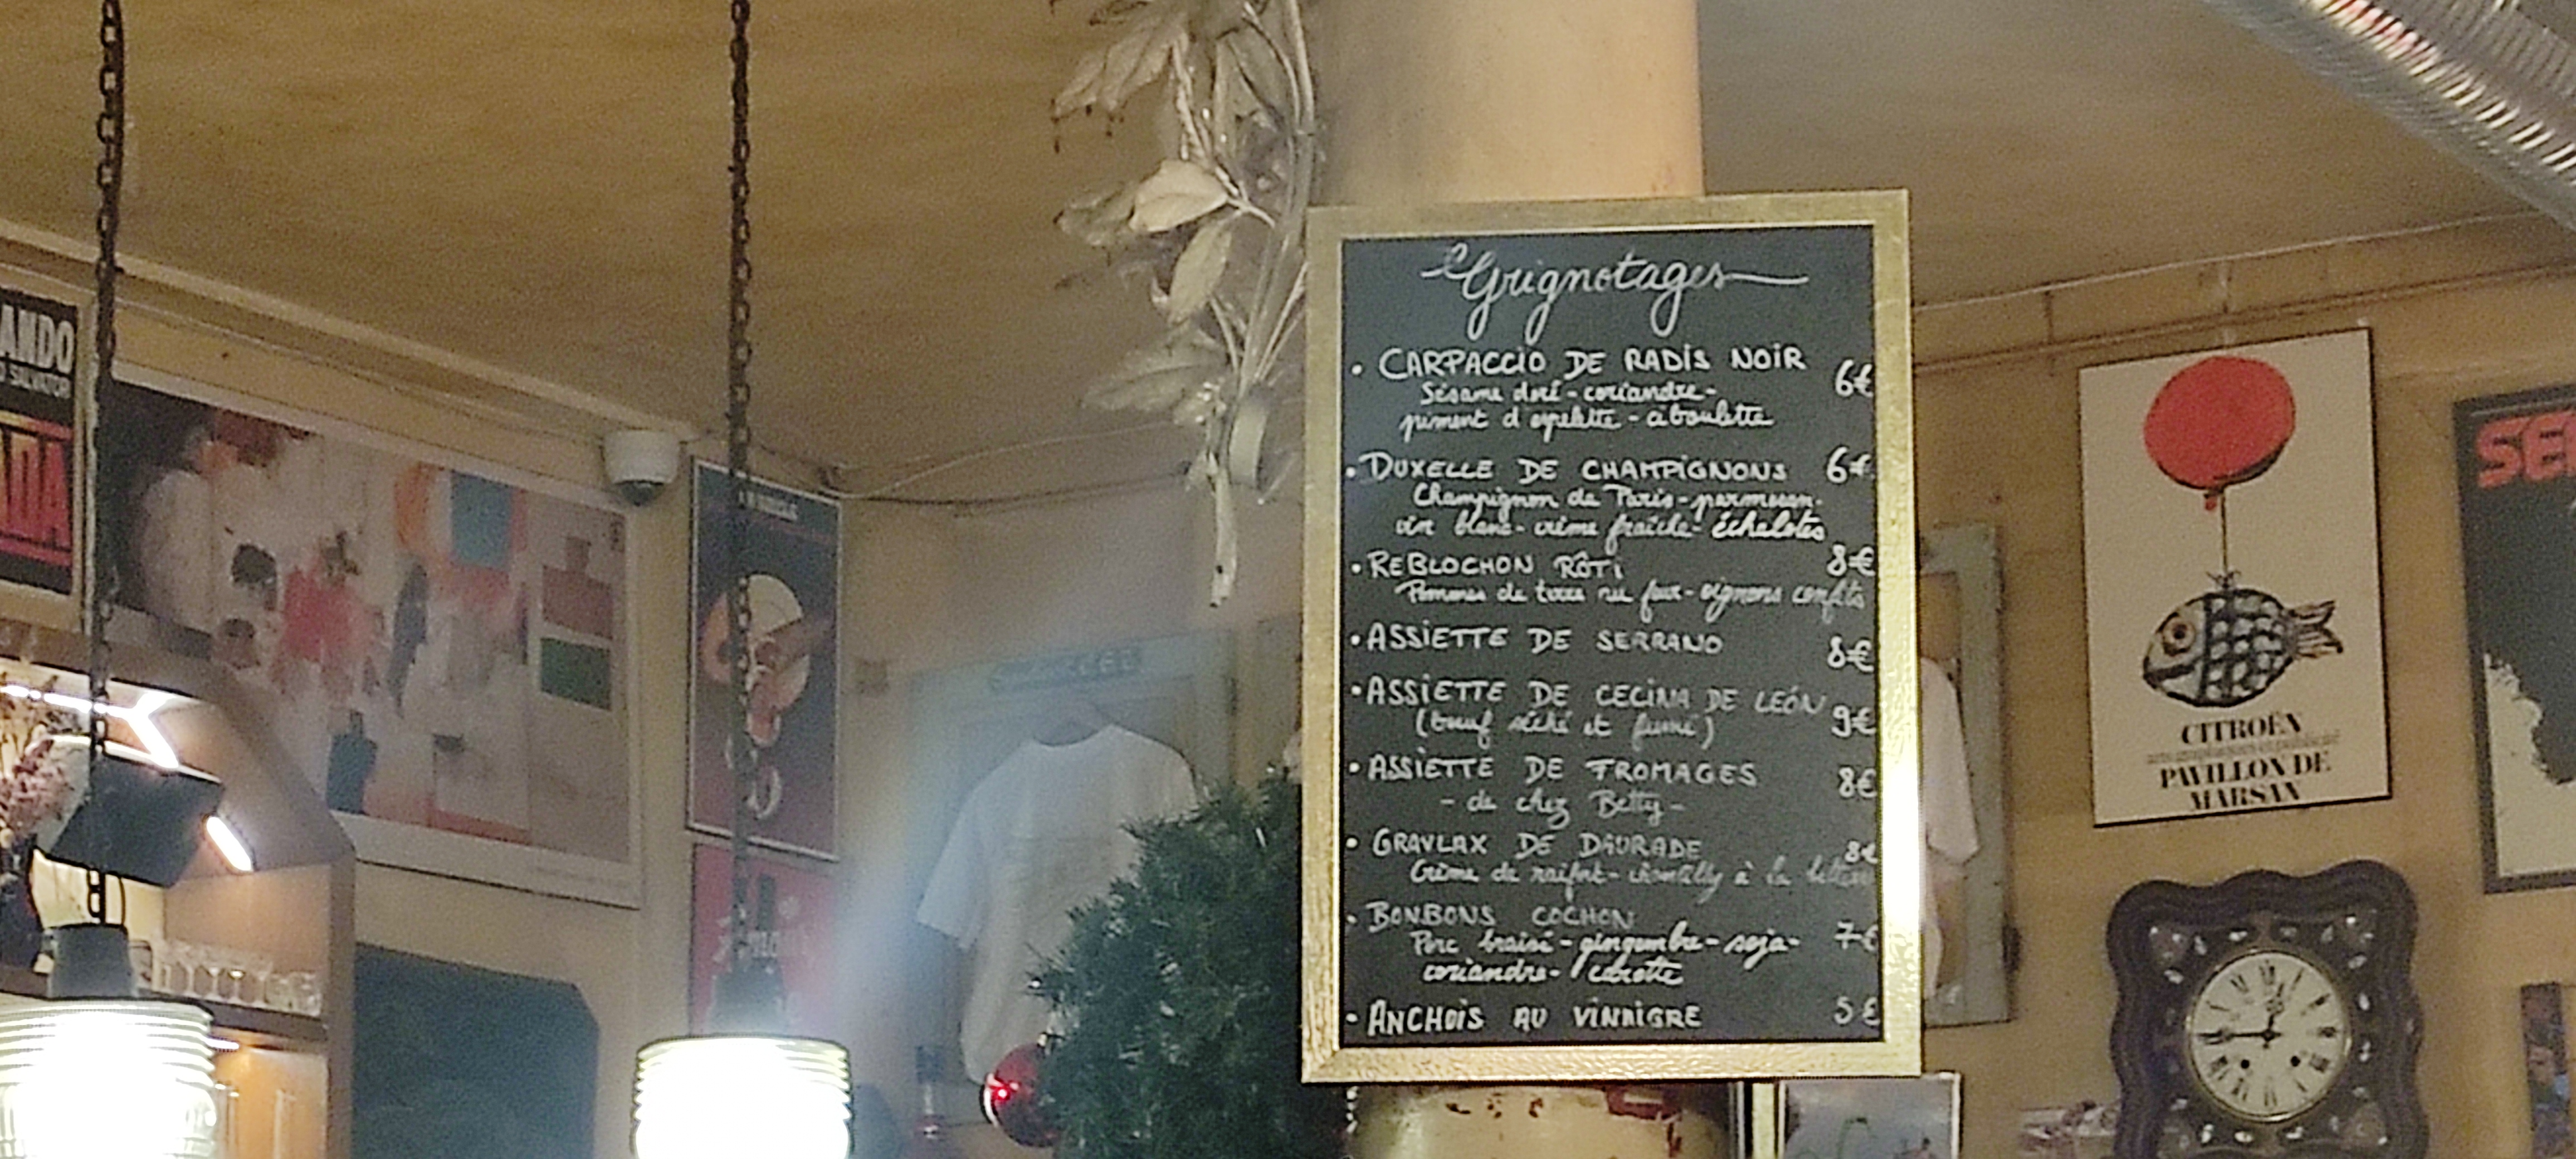 ANDO
SALVATOR
Grignotages
• CARPACCIO DE RADIS NOIR 6€
Sésame doré - coriandre -
piment d'espelette - ciboulette
• DUXELLE DE CHAMPIGNONS 6€
Champignon de Paris - parmesan -
vin blanc - crème fraîche - échalotes
• REBLOCHON RÔTI 8€
Pommes de terre au four - oignons confits
• ASSIETTE DE SERRANO 8€
• ASSIETTE DE CECINA DE LEÓN 9€
(bœuf séché et fumé)
• ASSIETTE DE FROMAGES 8€
- de chez Betty -
• GRAVLAX DE DAURADE 8€
Crème de raifort - chantilly à la
• BONBONS COCHON 7€
Porc braisé - gingembre - soja -
coriandre - carotte
• ANCHOIS AU VINAIGRE 5€
CITROËN
PAVILLON DE
MARSAN